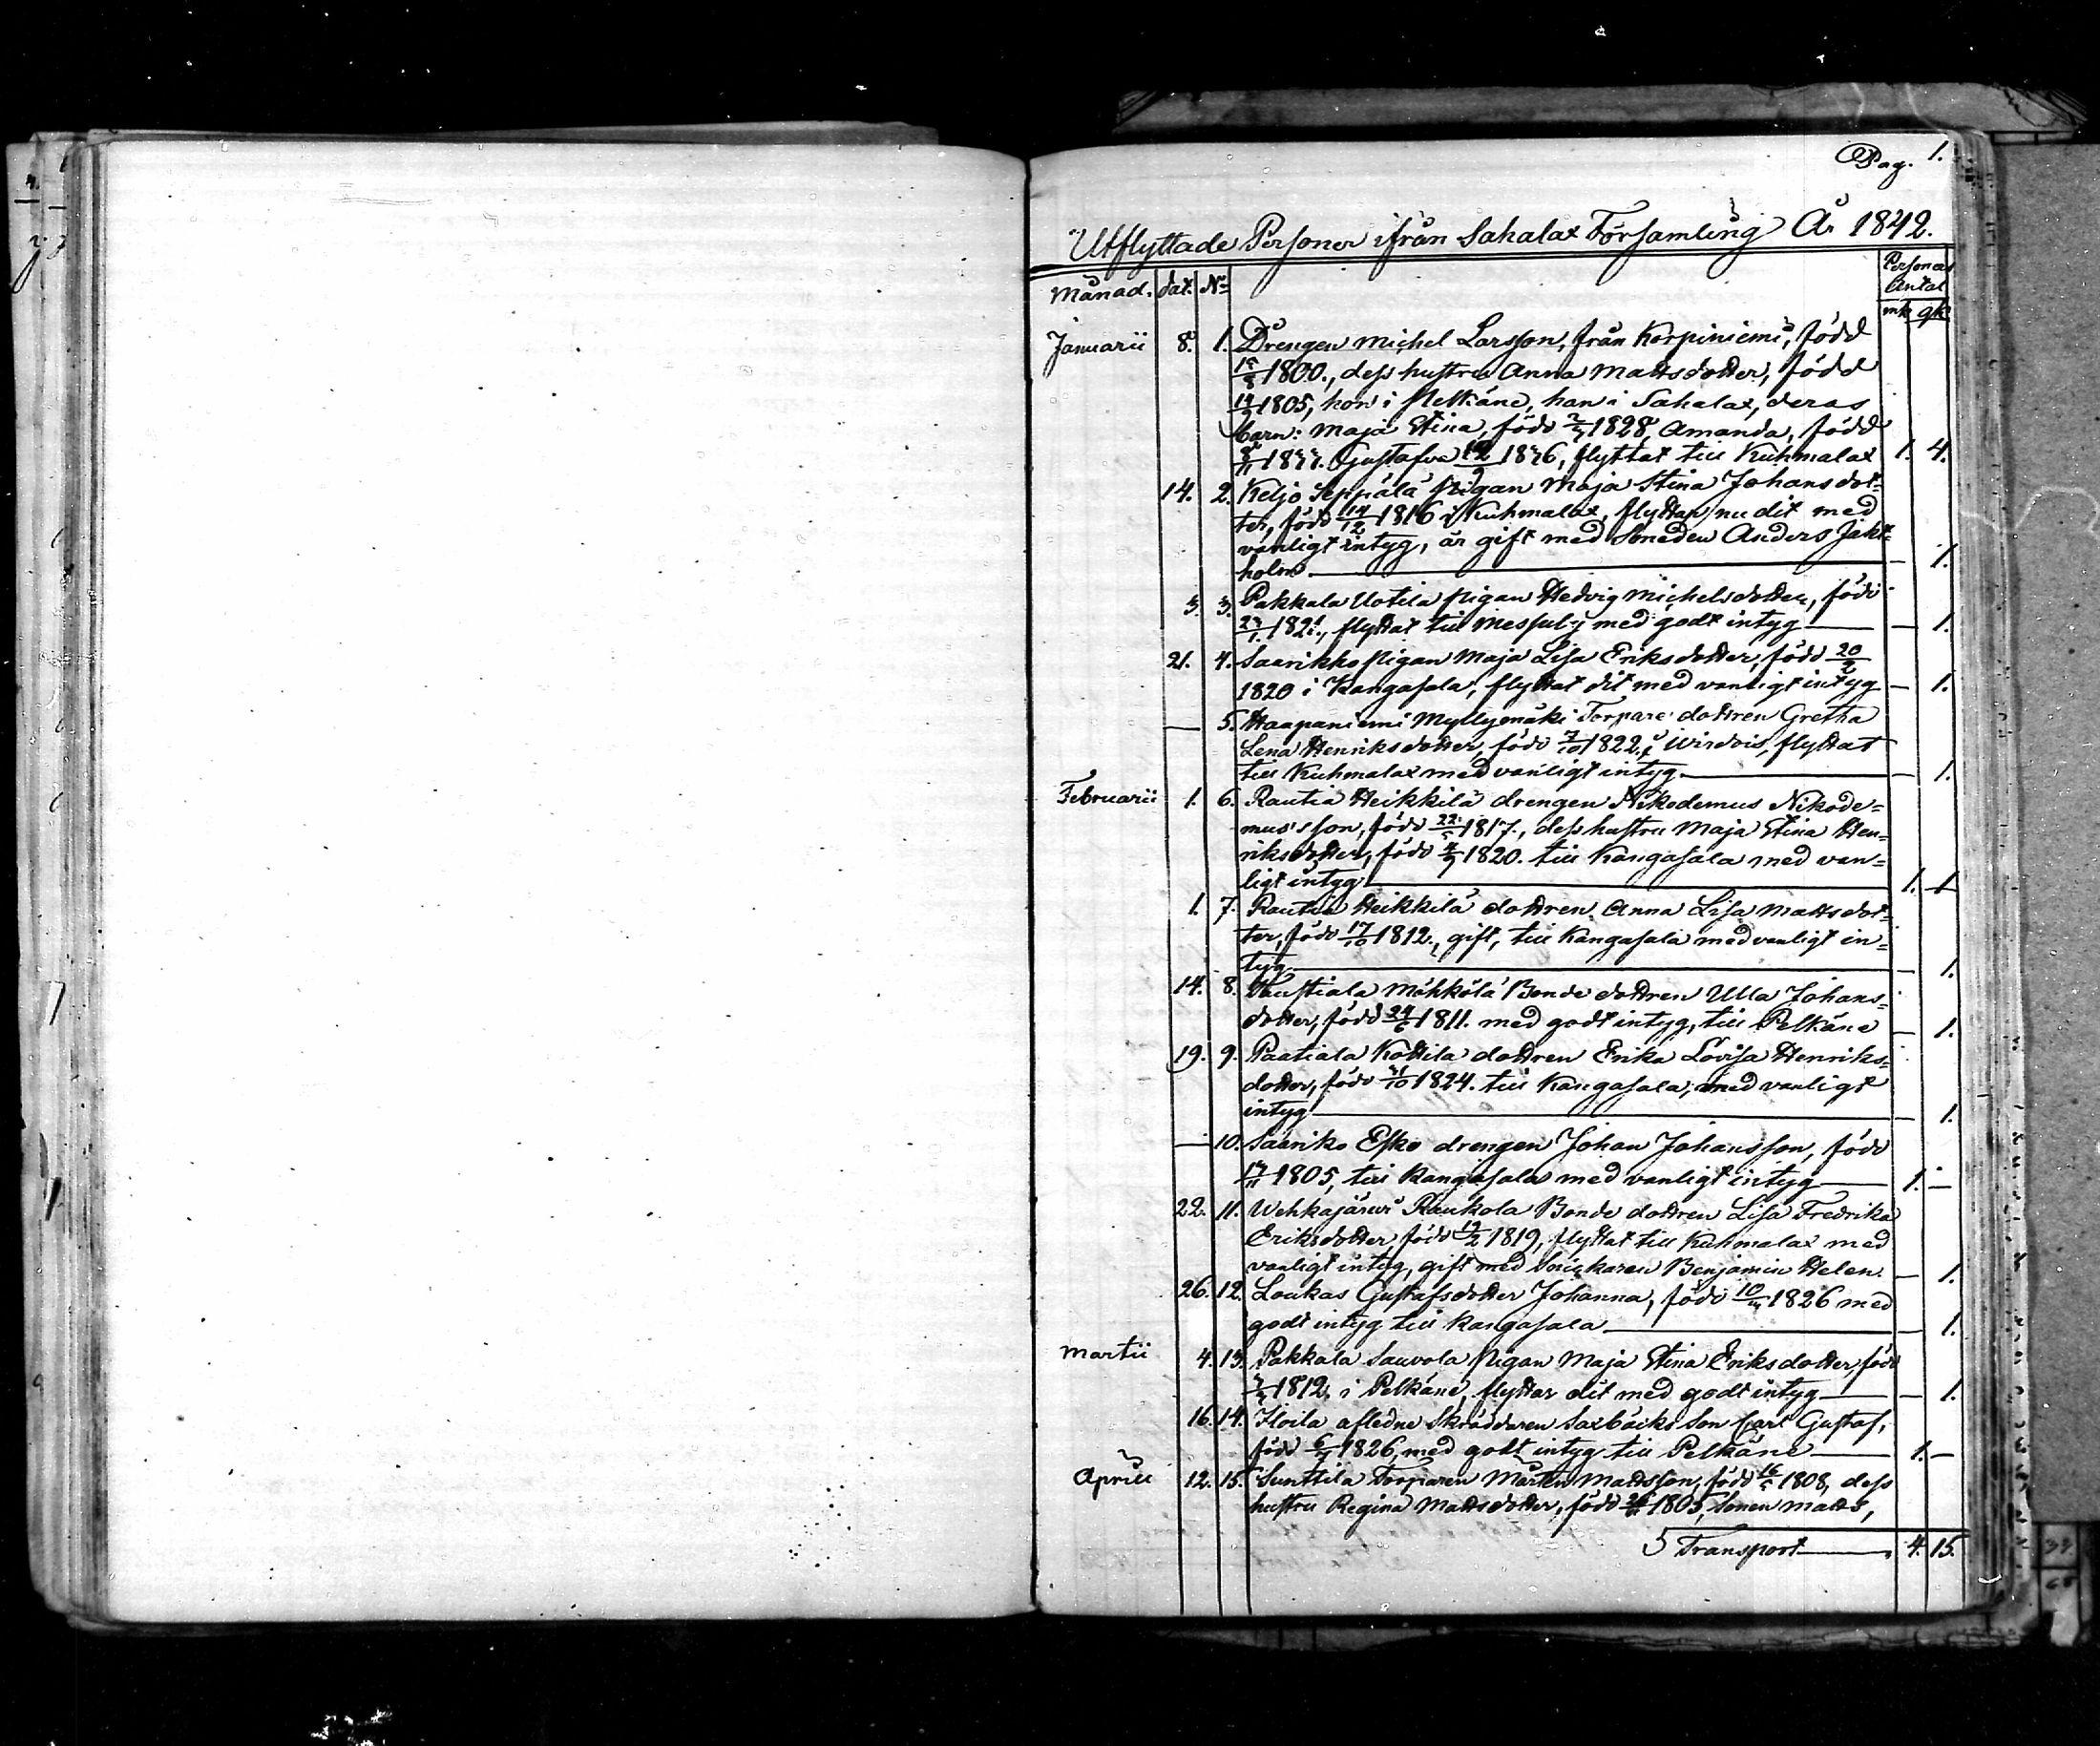 Pag. 1.
Utflyttade Personer ifrån Sahalax Församling År 1842.
Månad. dat. No Personers Antal
mk qk
Januarii 8. 1. Drengen Michel Larsson, från Korpiniemi, född
1800., dess hustru Anna Mattsdotter, född
1805, hon i Pelkäne, han i Sahalax, deras
barn: Maja Stina, född 1828, Amanda, född
Gustafva flyttat till Kuhmalax 1. 4.
14. 2. Keljo Seppälä Pigan Maja Stina Johansdot=
ter, född 14/12 1816 i Kuhmalax, flyttar nu dit med
vanligt intyg, är gift med Smeden Anders Jakt=
holm — 1.
3. 3. Pakkala Uotila Pigan Hedvig Michelsdotter, född
23/1 182 flyttat till Messuby med godt intyg — 1.
21. 4. Saarikko Pigan Maja Lisa Eriksdotter, född 20/2
1820 i Kangasala, flyttat dit med vanligt intyg — 1.
— 5. Haapaniemi Myllymäki Torpare dottren Gretha
Lena Henriksdotter, född 7/10 1822 i Wirdois, flyttat
till Kuhmalax med vanligt intyg. — 1.
Februarii 1. 6. Rautia Heikkilä drengen Nikodemus Nikode=
mus'sson, född 22/5 1817., dess hustru Maja Stina Hen=
riksdotter, född 1820. till Kangasala med van=
ligt intyg 1. 1
1. 7. Rautia Heikkilä dottren Anna Lisa Mattsdot=
ter, född 17/10 1812., gift, till Kangasala med vanligt in=
tyg — 1.
14. 8. Taustiala Möhkölä Bonde dottren Ulla Johans=
dotter, född 24/6 1811. med godt intyg, till Pelkäne — 1.
19. 9. Paatiala Kottila dottren Erika Lovisa Henriks=
dotter, född 1824. till Kangasala, med vanligt
intyg — 1.
— 10. Saariko Esko drengen Johan Johansson, född
17/11 1805, till Kangasala med vanligt intyg 1. —
22. 11. Wehkajärvi Raukola Bonde dottren Lisa Fredrika
Eriksdotter född 1819, flyttat till Kuhmalax med
vanligt intyg, gift med Snickaren Benjamin Helen. — 1.
26. 12. Loukas Gustafsdotter Johanna, född 1826 med
godt intyg till Kangasala — 1.
Martii 4. 13. Pakkala Sauvola Pigan Maja Stina Eriksdotter, född
1812, i Pelkäne, flyttar dit med godt intyg — 1.
16. 14. afledne Skräddaren Saxbäcks Son Carl Gustaf,
född 1826, med godt intyg till Pelkäne 1. —
Aprill 12. 15. Sunttila Torparen Mårten Mattsson, född 1808, dess
hustru Regina Mattsdotter, född 1805, Sonen Matts,
Transport 4. 15.